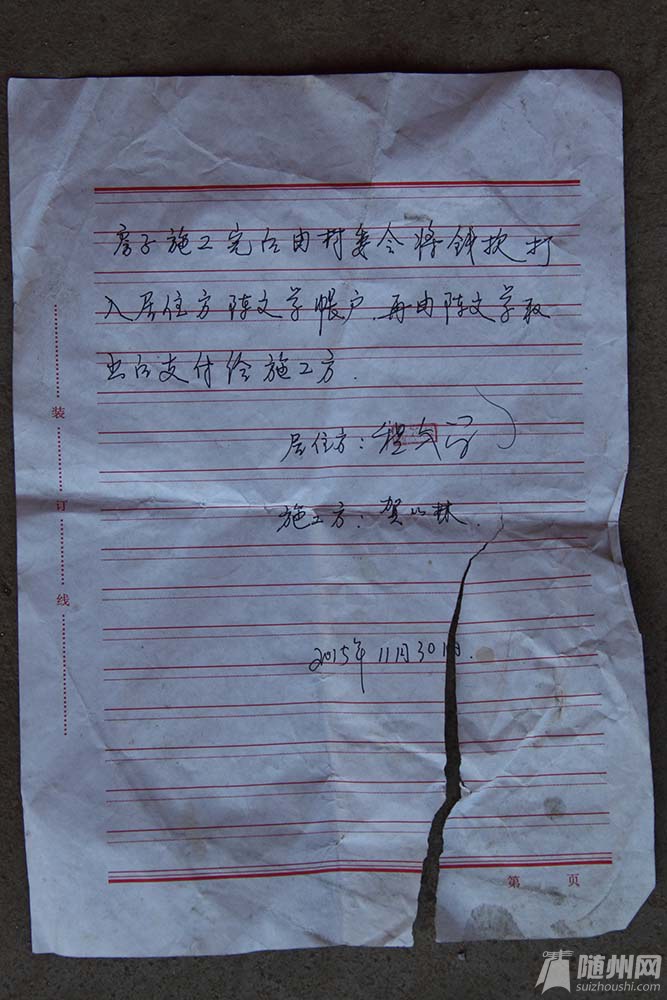 房子施工完后由村委会将钱款打
入居住方陈文学帐户.再由陈文学取
出后支付给施工方.
居住方:
施工方:贺
2015年11月30日.
装
订
线
第 页
随州网
suizhoushi.com